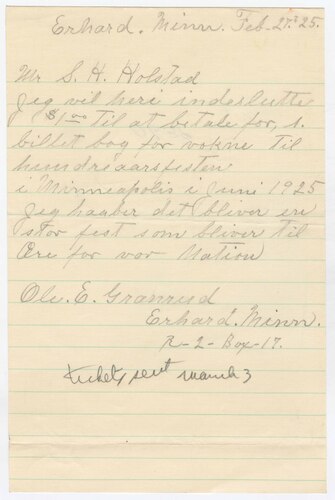 Erhard. Minn. Feb-27-25.
Mr S. H. Holstad
Jeg vil heri inderlutte
$1.00 til at betale for, 1.
billet bog for vokne til
hundreaarsfesten
i Minneapolis i Juni 1925
Jeg haaber det bliver en
stor fest som bliver til
Ære for vor Nation
Ole. E. Granrud
Erhard. Minn.
R-2-Box-17.
tickets sent March 3